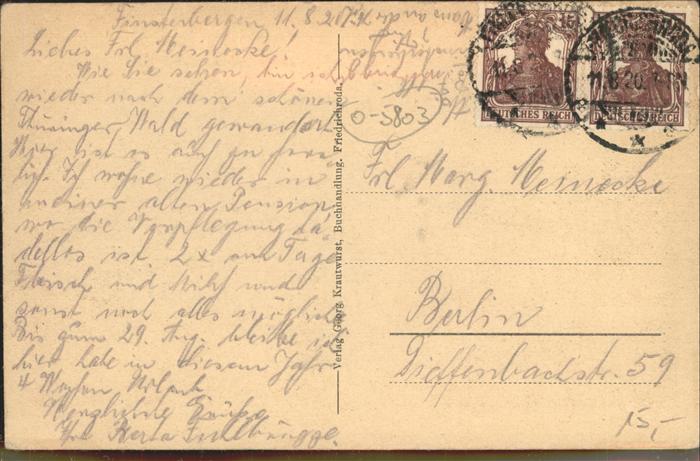 Finsterbergen 11.8.20.
Liebes Frl. Meinecke!
Wie Sie sehen, bin ich
wieder nach dem schönen
Thüringer Wald gewandert.
Hier ist es auch zu herr-
lich. Ich wohne wieder in
meiner alten Pension
wo die Verpflegung ta-
dellos ist 2x am Tage
Fleisch und Milch und
sonst noch alles mögliche
Bis zum 29. Aug. bleibe ich
hier habe in diesem Jahr
4 Wochen Urlaub
Herzlichste Grüße
Ihre Berta
0-3803
Verlag Georg Krautwurst, Buchhandlung, Friedrichroda.
15
DEUTSCHES REICH
DEUTSCHES REICH
11.8.20
Frl. Marg. Meinecke
Berlin
Dieffenbachstr. 59
15,-